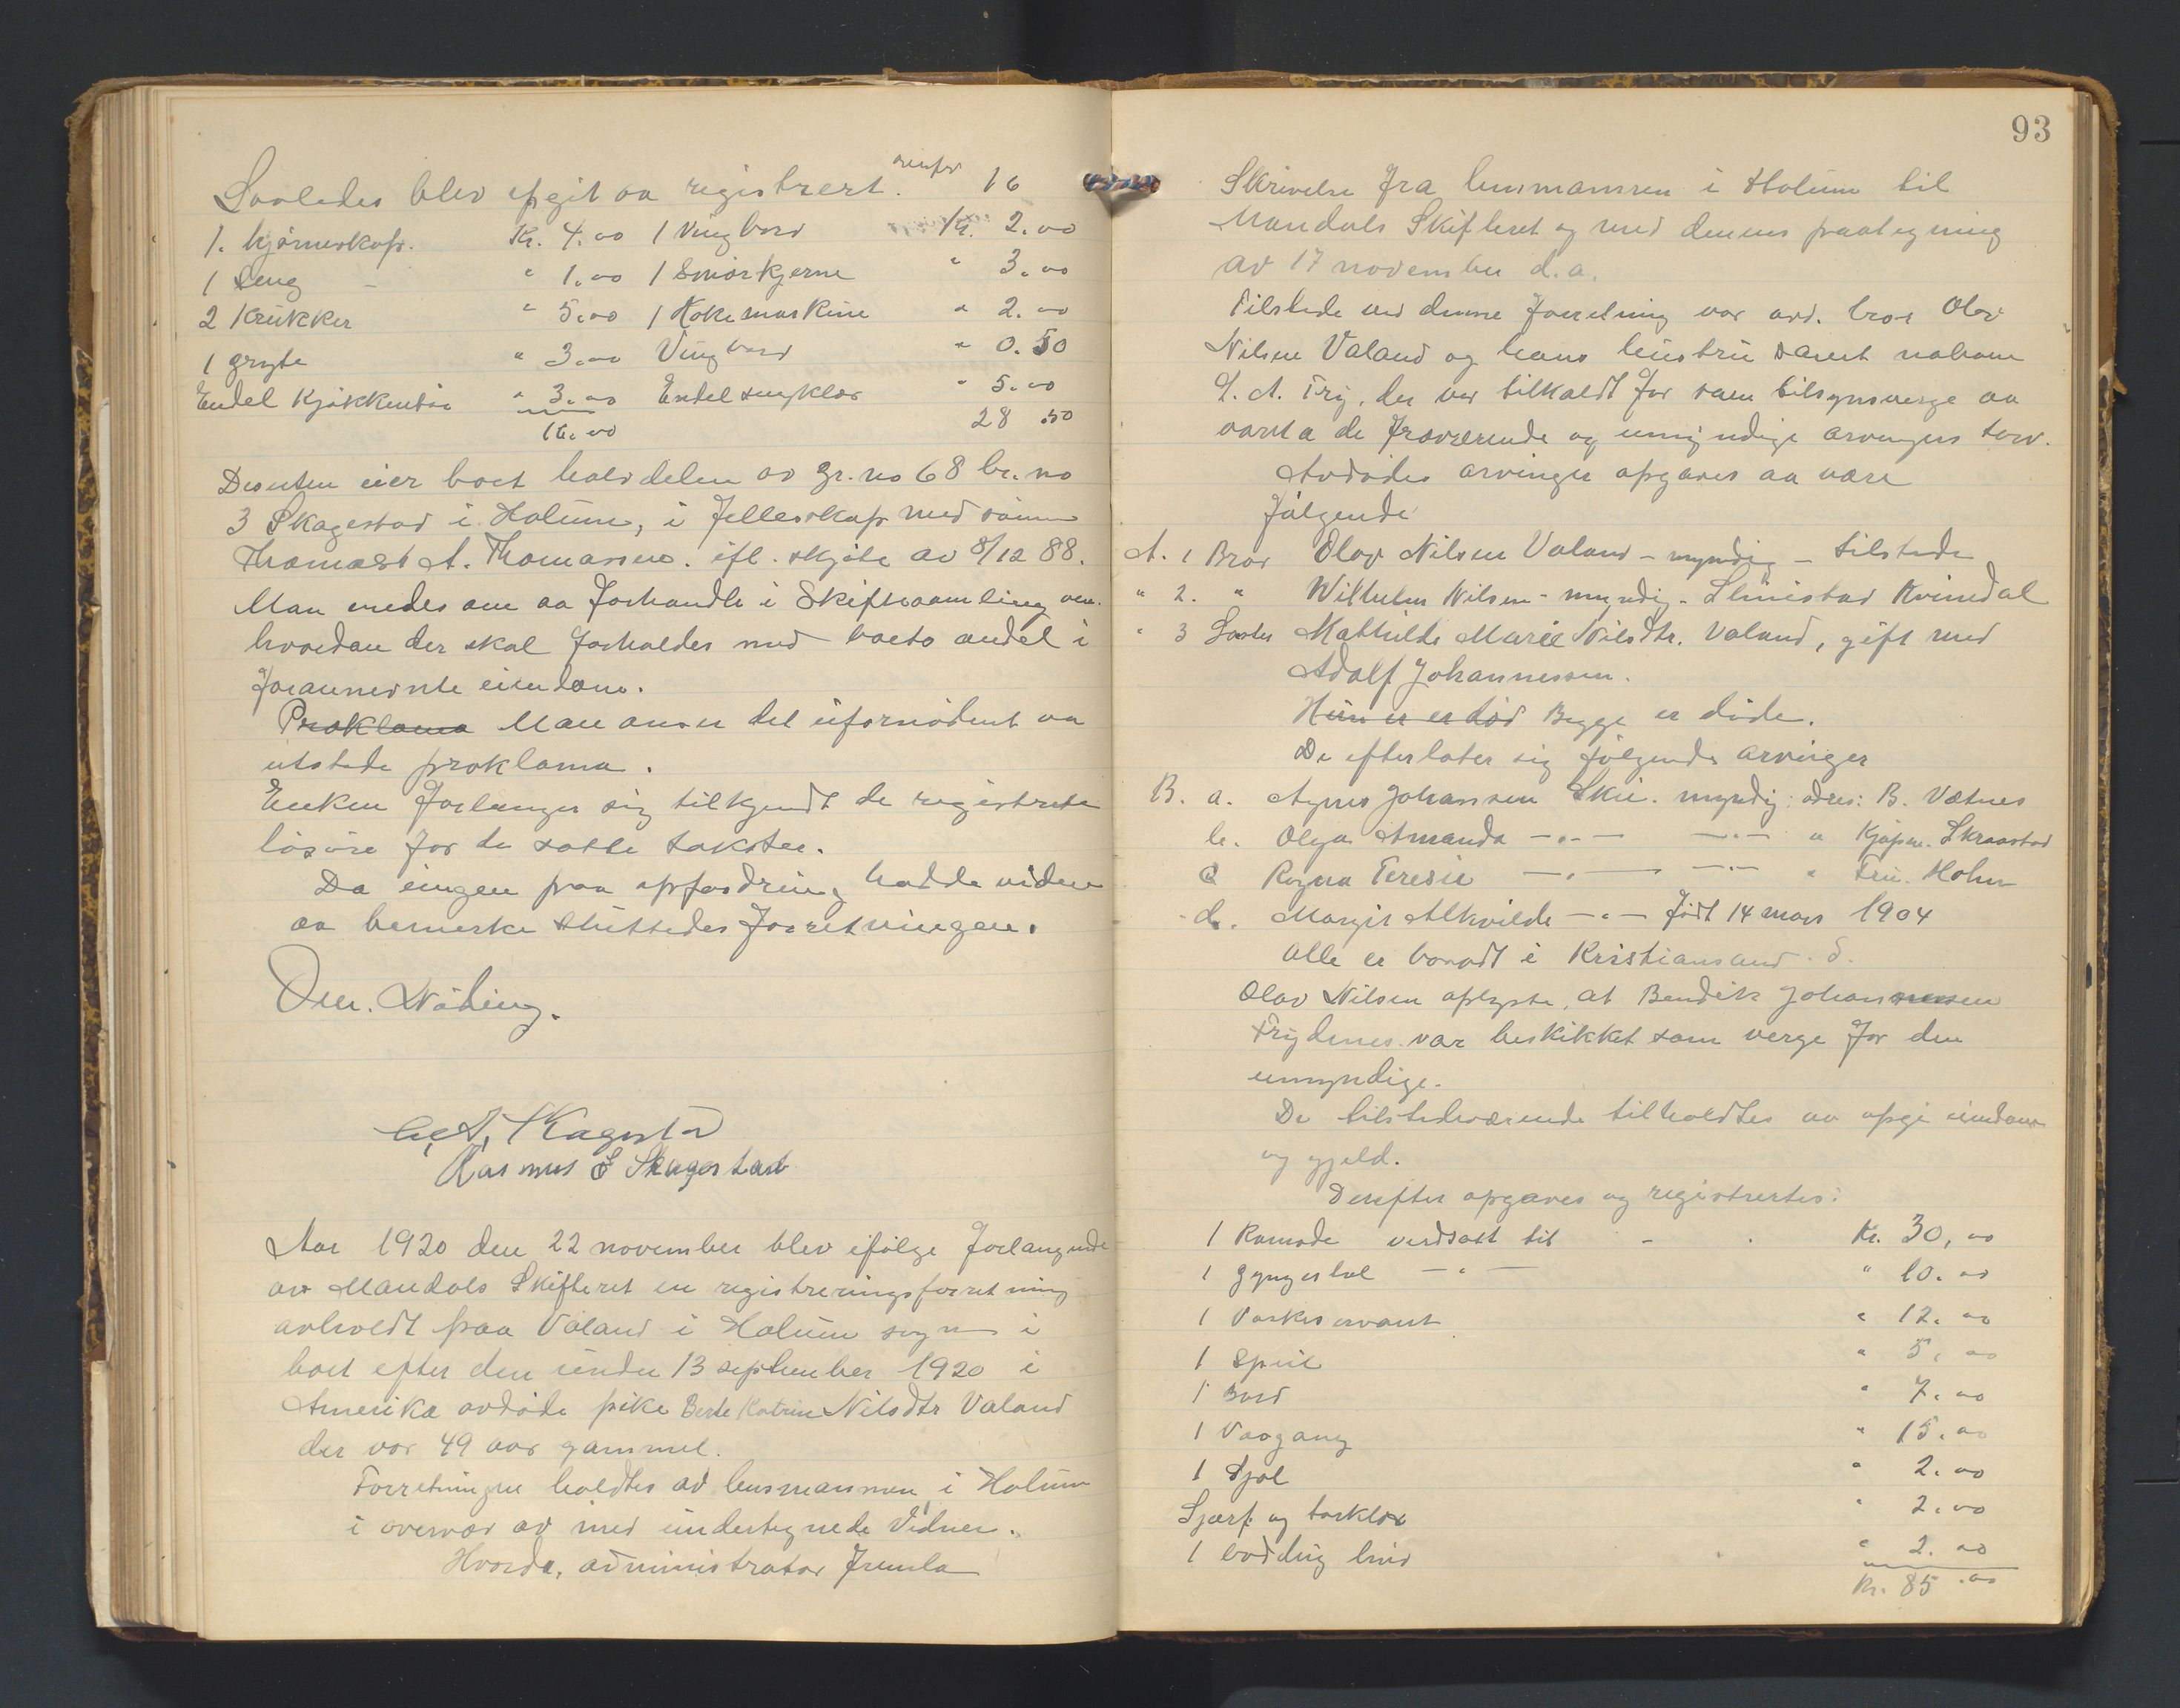 Saaledes blev opgit aa registrert. 16
1. hjørneskap. Kr. 4.00 1 Vingbord Kr. 2.00
1 Seng - " 1.00 1 Smørkjerne " 3.00
2 Krukker " 5.00 1 Hakemaskine " 2.00
1 gryte " 3.00 Vingbord " 0.50
Endel Kjøkkentøi " 3.00 Endel sengklær " 5.00
16.00 28.50
Desuten eier boet halvdelen av gr. no 68 br. no
3 Skagestad i Holum, i fellesskap med sønn
Thomas A. Thomassen. ifl. skjøte av 8/12 88.
Man enedes om aa forhandle i Skiftesamling om
hvordan der skal forholdes med boets andel i
forannevnte eiendom.
Proklama Man anser det ufornødent aa
utstede proklama.
Enken forlanger sig tilkjendt de registrerte
løsøre for de satte takster.
Da ingen paa opfordring hadde videre
aa bemerke sluttedes forretningen.
Om. Nøding.
Skagestad
Rasmus S Skagestad
Aar 1920 den 22 november blev ifølge forlangende
av Mandals Skifteret en registreringsforretning
avholdt paa Valand i Holum sogn i
boet efter den under 13 september 1920 i
Amerika avdøde pike Berte Katrine Nilsdtr Valand
der var 49 aar gammel.
Forretningen holdtes av lensmannen i Holum
i overvær av med undertegnede Vidner.
Hvorda, administrator fremla
93
Skrivelse fra lensmannen i Holum til
Mandals Skifteret og med dennes paategning
av 17 november d.a.
Tilstede ved denne forretning var avd. bror Olav
Nilsen Valand og hans hustru samt naboen
A. Try, der var tilkaldt for som tilsynsverge aa
vareta de fraværende og umyndige arvingers tarv.
Avdødes arvinger opgaves aa være
følgende
A. 1 Bror Olav Nilsen Valand - myndig - tilstede
" 2. " Wilhelm Nilsen - myndig - Slimestad Kvinesdal
" 3 Søster Mathilde Marie Nilsdtr. Valand, gift med
Adolf Johannessen.
Hun er er død Begge er døde.
De efterlater sig følgende arvinger
B. a. Agnes Johansen Ski. myndig: adres: B. Vatnes
b. Olga Amanda -"- -"- " Kjøpm. Skraastad
c Ragna Teresie -"- -"- " Fru. Holm
d. Margit Alkvilde -"- født 14 mars 1904
Alle er bosadt i Kristiansand. S.
Olav Nilsen oplyste, at Bendik Johannessen
Frydenes var beskikket som verge for den
umyndige.
De tilstedeværende tilholdtes aa opgi eiendom
og gjeld.
Derefter opgaves og registrertes:
1 Komode verdsatt til - Kr. 30,00
1 Gyngestol -"- " 10.00
1 Vaskeservant " 12.00
1 Speil " 5,00
1 Bord " 7.00
1 Vaagang " 15.00
1 Sjal " 2.00
Skjærf og torklær " 2.00
1 " 2.00
Kr. 85.00